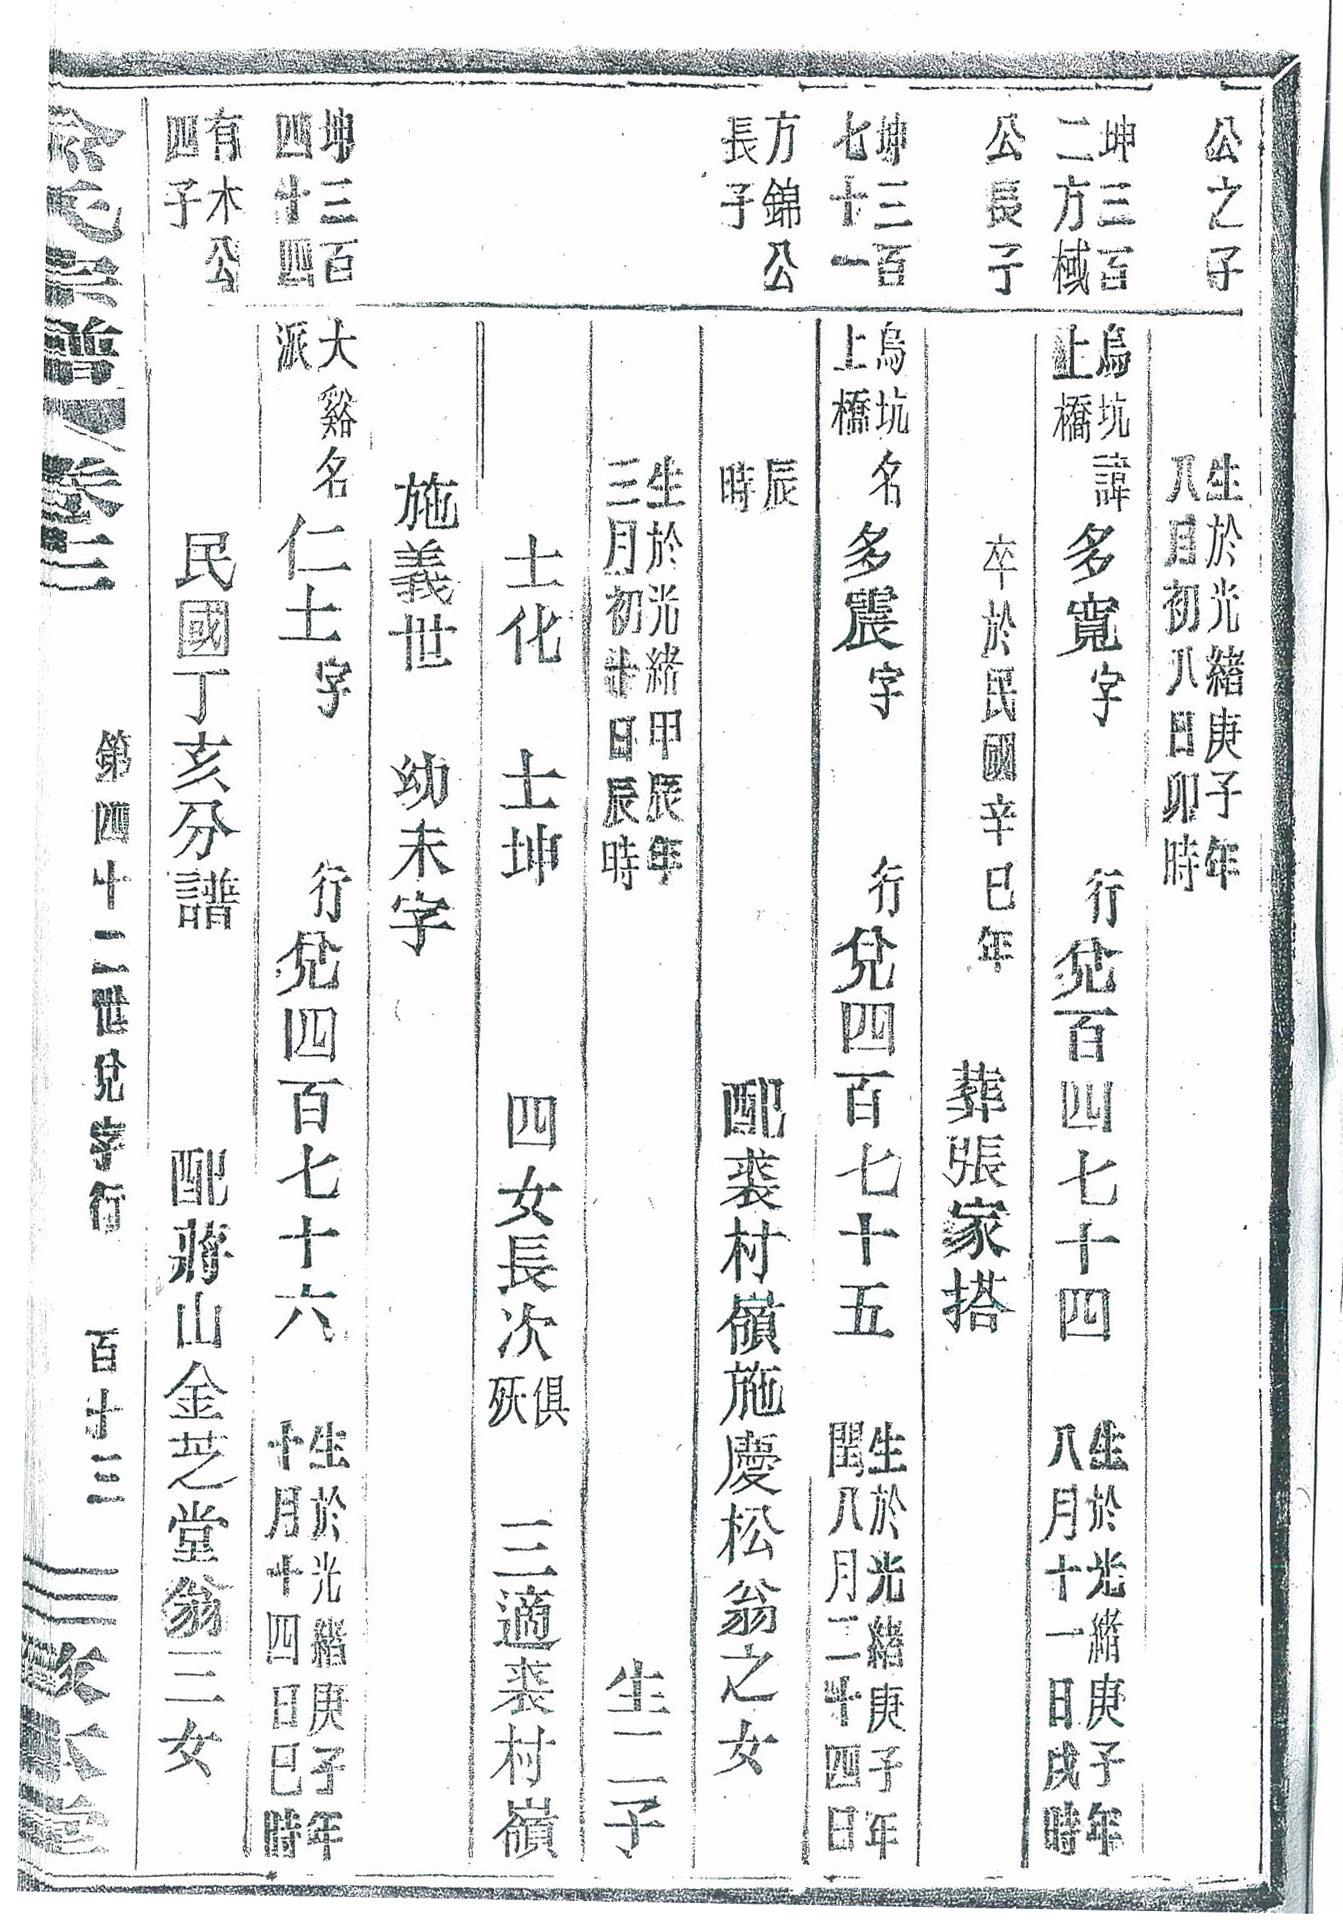 公之子
生於光緒庚子年
八月初八日卯時
坤三百
二方棫
烏坑
上橋
諱多寬字
行兌百四七十四
生於光緒庚子年
八月十一日戌時
公長子
卒於民國辛巳年
葬張家搭
坤三百
七十一
烏坑
上橋
名多震字
行兌四百七十五
生於光緒庚子年
閏八月二十四日
方錦公
長子
辰
時
配裘村嶺施慶松翁之女
生於光緒甲辰年
三月初十日辰時
生二子
士化
士坤
四女長次俱
殀
三適裘村嶺
施義世
幼未字
坤三百
四十四
大谿
派
名仁士字
行兌四百七十六
生於光緒庚子年
十月十四日巳時
有木公
四子
民國丁亥分譜
配蔣山金芝堂翁三女
氏宗譜
卷三
第四十二世兌字行
百十三
敦本堂